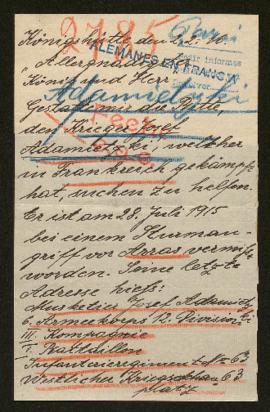 2785
Paris
Königshütte, den 21. 10.
ALEMANES EN FRANCIA
"Allergnädigster
König und Herr"
Adamietzki
Gestatten die Bitte,
den Krieger Josef
Adamietzki, welcher
in Frankreich gekämpft
hat, suchen zu helfen.
Er ist am 28. Juli 1915
bei einem Sturman-
griff vor Arras vermißt
worden. Seine letzte
Adresse hieß:
Musketier Josef Adamietzki
6. Armeekorps 12. Division
III. Kompagnie
I. Bataillon
Infanterieregiment No 63
Westlicher Kriegsschau
platz